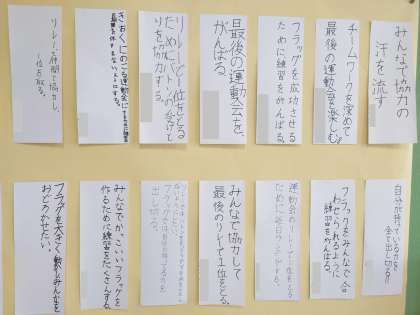 みんなで協力の
汗を流す
チームワークを深めて
最後の運動会を楽しむ。
フラッグを成功させる
ために練習をがんばる。
最後の運動会を、
がんばる。
リレーで一位をとる
ためにバトンの受けと
りを協力する。
きおくにのこる運動会に
リレーで仲間と協力し、
一位を取る。
自分が持っている力を
全て出し切る!!
フラッグをみんなで合
わせられるように
練習をがんばる。
運動会のリレーで一位をとる
ために
みんなで協力して
最後のリレーで1位をとる。
出し切る。
みんなでかっこいいフラッグを
作るために練習をたくさんする。
フラッグを大きく動かしみんなを
おどろかせたい。